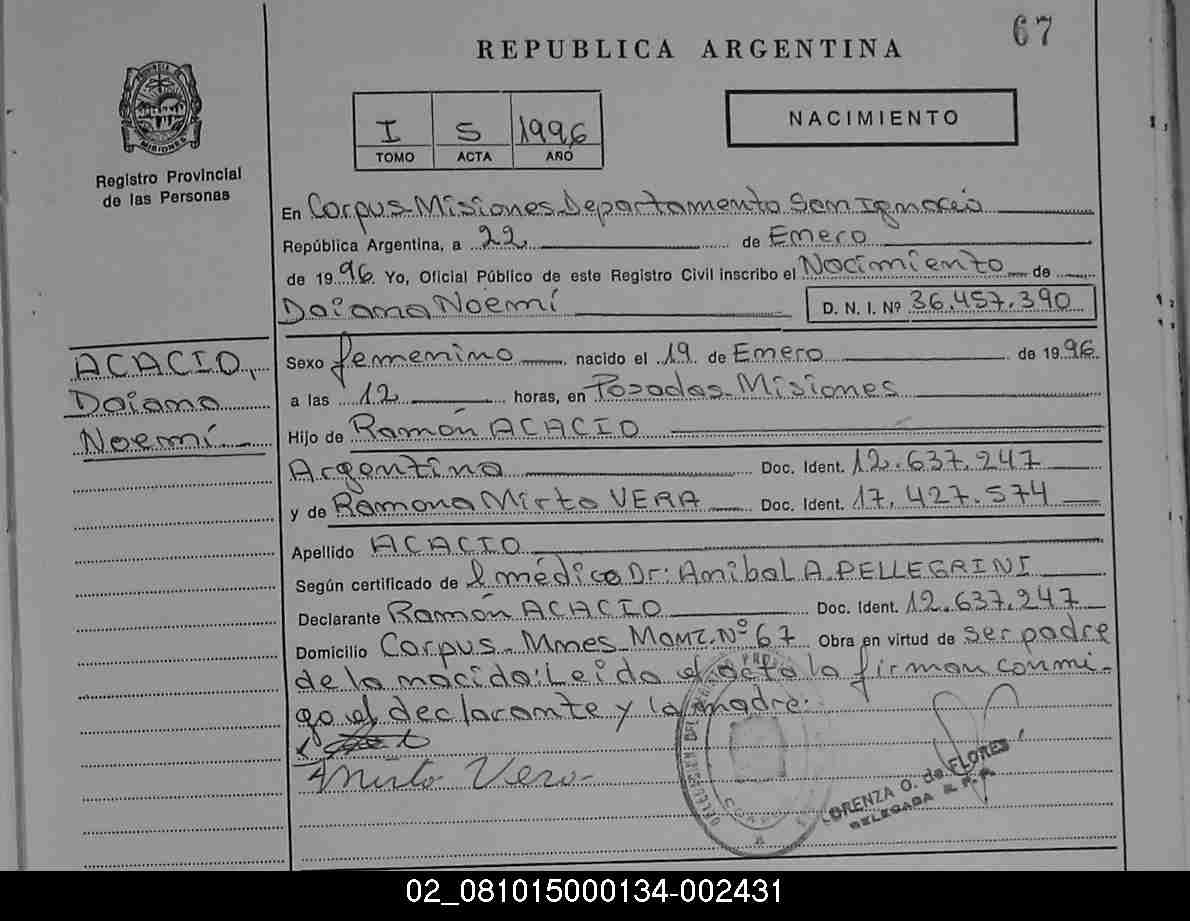 67
REPUBLICA ARGENTINA
PROVINCIA DE MISIONES
Registro Provincial
de las Personas
I S 1996
TOMO ACTA AÑO
NACIMIENTO
En Corpus Misiones Departamento San Ignacio
República Argentina, a 22 de Enero
de 1996. Yo, Oficial Público de este Registro Civil inscribo el Nacimiento de
Daiana Noemí D. N. I. Nº 36.457.390
ACACIO,
Daiana
Noemí
Sexo femenino nacido el 19 de Enero de 1996.
a las 12 horas, en Posadas Misiones
Hijo de Ramón ACACIO
Argentino Doc. Ident. 12.637.247
y de Ramona Mirta VERA Doc. Ident. 17.427.574
Apellido ACACIO
Según certificado de el médico Dr: Anibal A. PELLEGRINI
Declarante Ramón ACACIO Doc. Ident. 12.637.247
Domicilio Corpus Mnes Manz. Nº 67 Obra en virtud de ser padre
de la nacida: Leida el acta la firman conmi-
go el declarante y la madre.
Mirta Vera
LORENZA O. de FLORES
DELEGADA R.P.P.
02_081015000134-002431